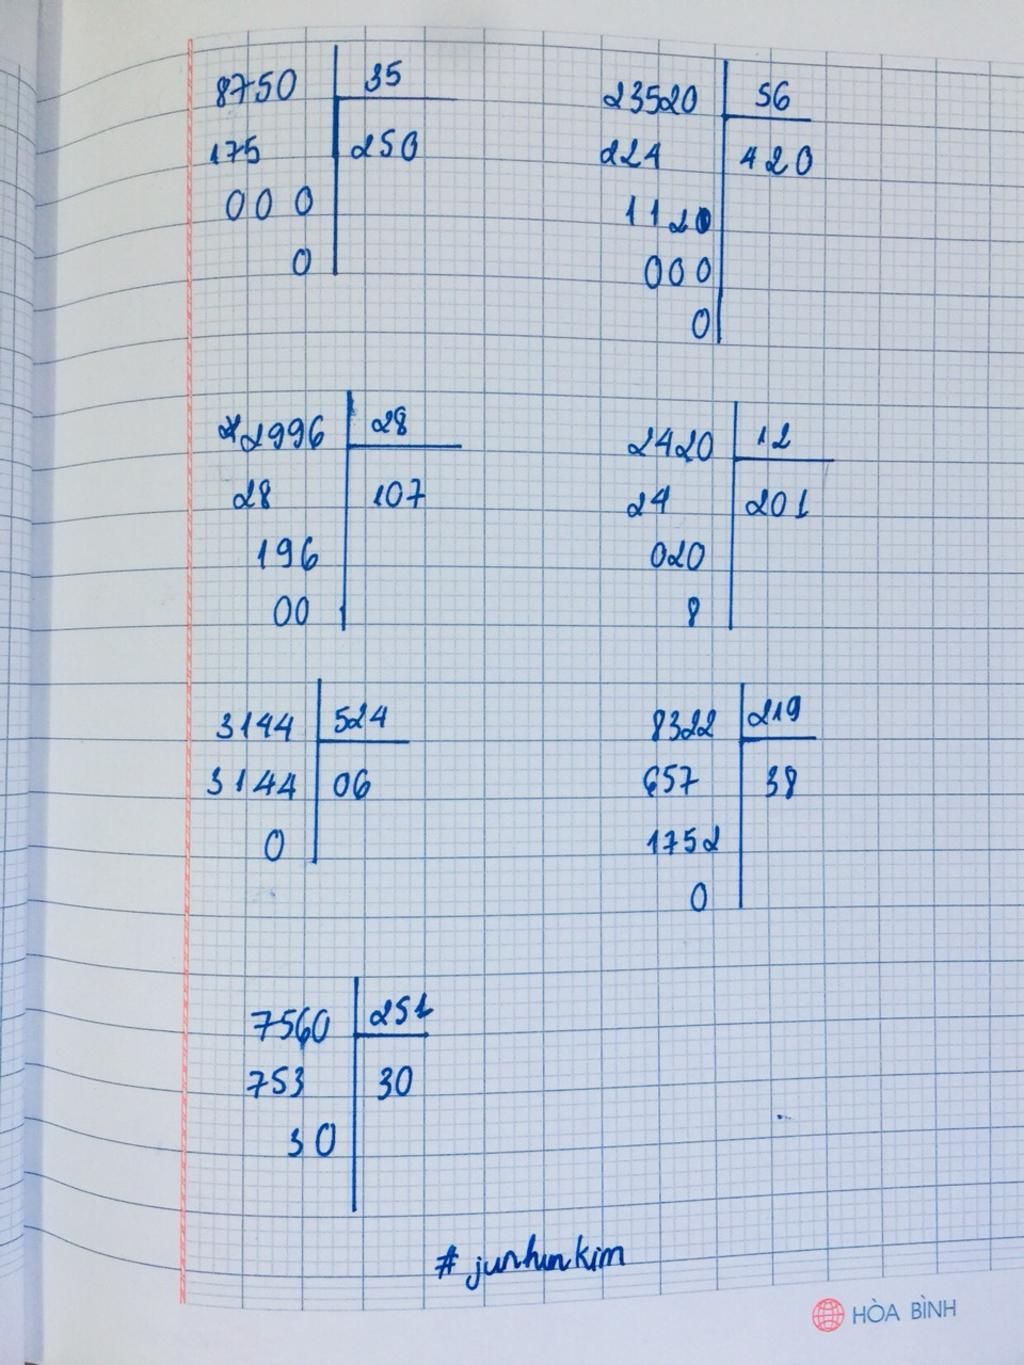 8750 35
175 250
000
0
23520 56
224 420
1120
000
0
2996 28
28 107
196
00
2420 12
24 201
020
8
3144 524
3144 06
0
8322 219
657 38
1752
0
7560 251
753 30
30
# junhunkim
HÒA BÌNH